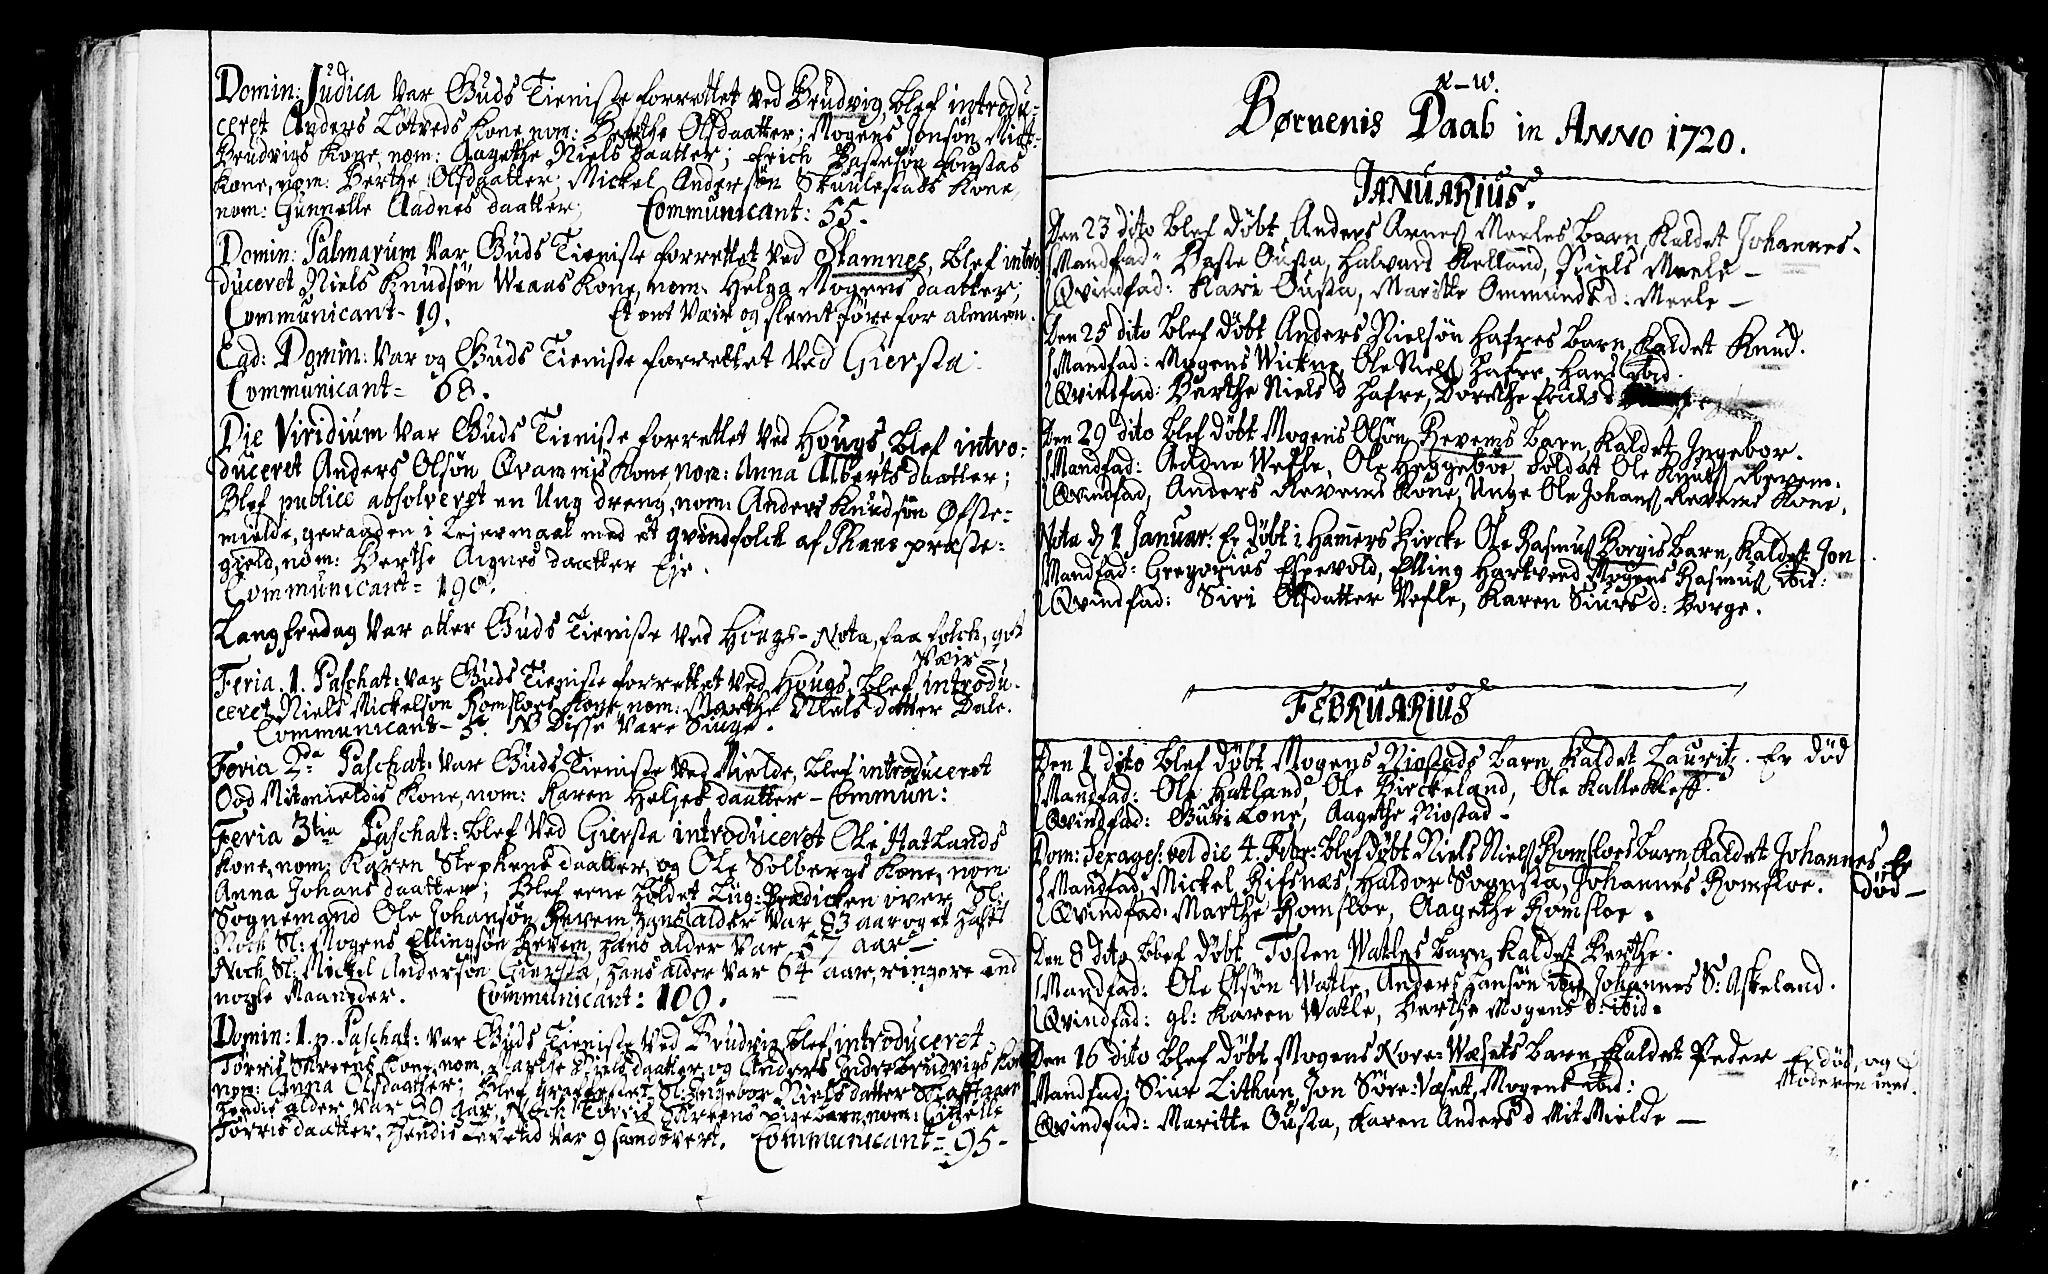 Domin: Judica var Guds Tieniste forrettet ved Brudvig, blef introdu-
ceret Anders Løtveds Kone nom: Berthe Olsdaatter; Mogens Jonsøn Mitt-
Brudvigs Kone, nom: Aagethe Nielsdaatter; Erich
Kone, nom: Berthe Olsdaatter, Mickel Andersøn Skuulestads Kone,
nom: Gunnelle Aadnes daatter; Communicant: 55.
Domin: Palmarum var Guds Tieniste forrettet ved Stamnes, blef intro
duceret Niels Knudsøn Kone, nom: Helga Mogens daatter;
Communicant- 19. Et ont Vær og slemt føre for almuen.
Eád: Domin: var og Guds Tieniste forrettet ved Giersta.
Communicant= 68.
Die Viridium var Guds Tieniste forrettet ved Hougs, blef intro-
duceret Anders Olsøn Qvammis Kone, nom: Anna Alberts daatter;
Blef publicè absolveret en Ung dreng, nom: Anders Knudsøn Øfste-
mielde, geraaden i Leiermaal med et qvindfolck af Thane præste-
gield, nom: Berthe Aignes daatter Eje.
Communicant= 190.
Langfredag var atter Guds Tieniste ved Hougs- Nota, faa folck, got
Vær-
Feria. 1. Paschat: var Guds Tieniste forrettet ved Hougs, blef introdu-
ceret Niels Mickelsøn Romsloes Kone, nom: Marthe Niels datter Dale.
Communicant- 5. NB Disse vare Siuge.
Feria 2da Paschat: var Guds Tieniste ved Mielde, blef introduceret
Ood Mitmieldis Kone, nom: Karen Heljes daatter - Commun:
Feria 3tia Paschat: blef ved Giersta introduceret Ole Hatlands
Kone, nom: Karen Stephens daatter, og Ole Solbergs Kone, nom
Anna Johans daatter; Blef erne holdet Liig: Prædicken over Sl:
Sognemand Ole Johansøn Revem, hans alder var 83 aar og et halft
Noch Sl: Mogens Ellingsøn Revem, hans alder var 57 aar -
Noch Sl: Mickel Andersøn Giersta, hans alder var 64 aar, ringere end
nogle Maaneder. Communicant: 109.
Domin: 1. p. Paschat: var Guds Tieniste ved Brudvig, blef introduceret
Torris Kone, nom: Marthe Niels daatter, og Anders Indrebrudvigs Kone
nom: Anna Olsdaatter; Blef Sl: Ingebor Niels datter
hendis alder var 29 aar, Noch Torris pigebarn, nom:
Torris daatter, hendis Levetid var 9 samdøvert. Communicant= 95-
x-w.
Børnenis Daab in ANNO 1720.
JANUARIUS.
Den 23 dito blef døbt Anders Arnes Meeles barn, kaldet Johannes.
Mandfad- Ousta, Halvard Kelland, Niels Meele-
Qvindfad: Kari Ousta, Maritte Ommunds d: Meele-
Den 25 dito blef døbt Anders Nielsøn Hafres barn, kaldet Knud.
Mandfad: Mogens Ole Niels Hafre, Hans ibid.
Qvindfad: Berthe Niels d Hafre, Dorethe Erichs d
Den 29 dito blef døbt Mogens Olsøn Revems barn, kaldet Ingebor.
Mandfad: Aadne Wetle, Ole Heggeboe, Soldat Ole Knuts Revem.
Qvindfad, Anders Revems Kone, Unge Ole Johans Revems Kone.
Nota d 1 Januar: Er døbt i Hamers Kircke Ole Rasmus Borgis barn, kaldet Jon
Mandfad: Gregorius Espevold, Elling Hartveed Mogens Rasmus ibid:
Qvindfad: Siri Olsdatter Vefle, Karen Siurs d: Borge.
FEBRUARIUS
Den 1 dito blef døbt Mogens Niostads barn, kaldet Lauritz. Er død
Mandfad: Ole Hatland, Ole Birckeland, Ole Kalleklef.
Qvindfad: Guri Lone, Aagethe Niostad-
Dom: Sexages: vel die 4. Febr: blef døbt Niels Niels Romsloes barn kaldet Johannes. Er
død-
Mandfad: Mickel Rifsnæs, Haldor Sognsta, Johannes Romsloe.
Qvindfad: Marthe Romsloe, Aagethe Romsloe.
Den 8 dito blef døbt Tosten Watles barn, kaldet Berthe.
Mandfad: Ole Olsøn Watle, Anders Hansøn ibid, Johannes S: Askeland.
Qvindfad: gl: Karen Watle, Berthe Mogens d: ibid.
Den 16 dito blef døbt Mogens Nore-Wæsets barn, kaldet Peder Er død, og
Moderen med.
Mandfad: Siur Lithun, Jon Søre-Væset, Mogens ibid:
Qvindfad: Maritte Ousta, Karen Anders d MitMielde-